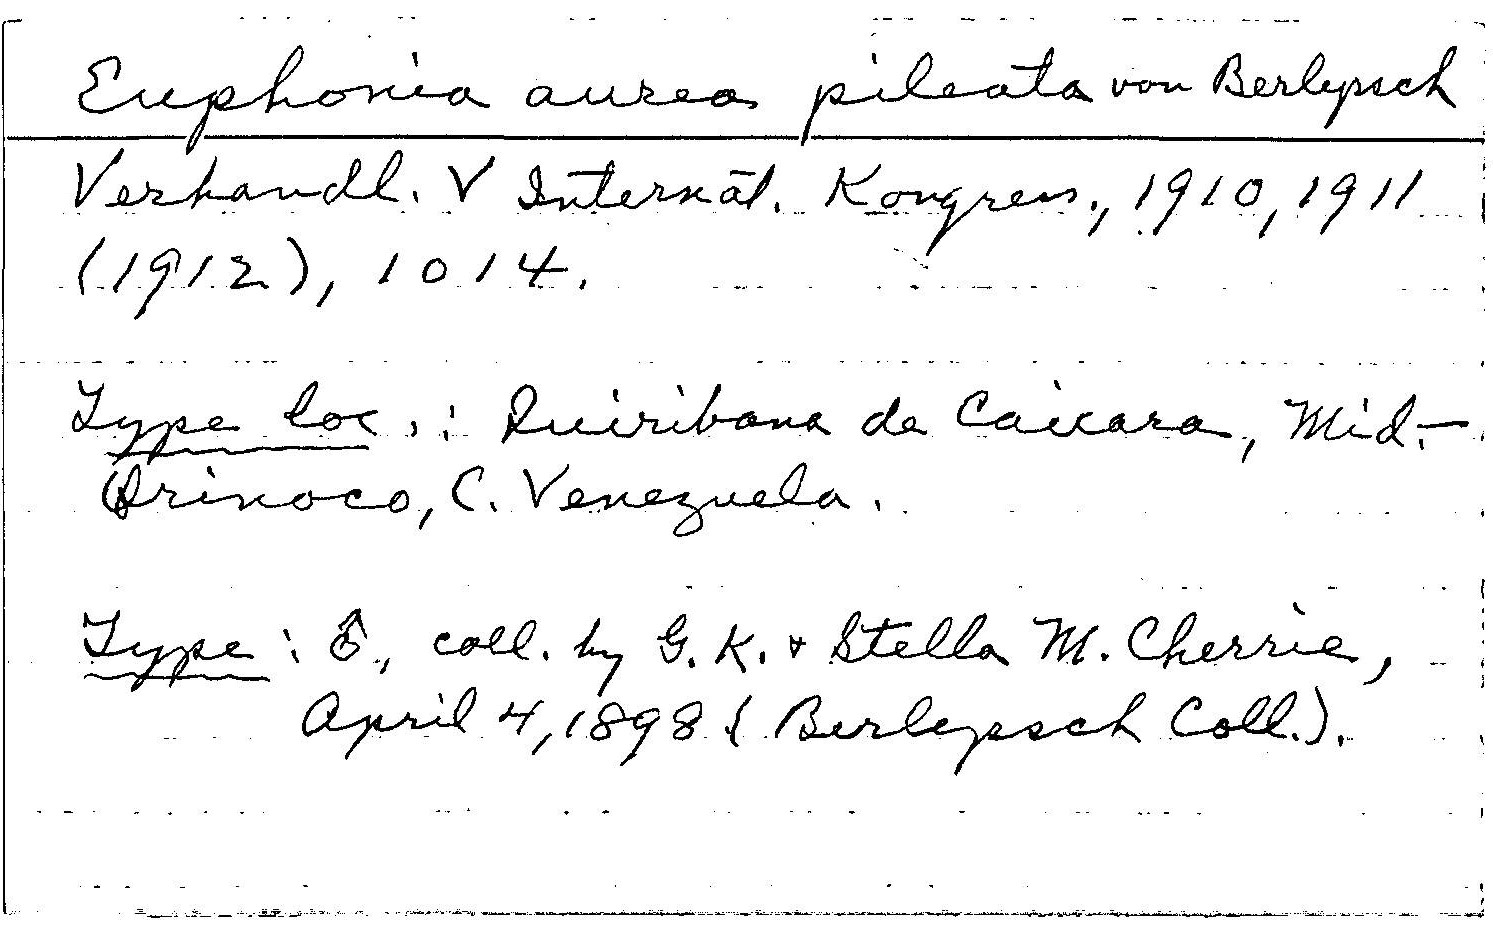 Euphonia aurea pileata von Berlepsch
Verhandl. V Internāt. Kongress., 1910, 1911
(1912), 1014.
Type loc.: Quiribana de Caicara, Mid.-
Orinoco, C. Venezuela.
Type: ♂, coll. by G. K. + Stella M. Cherrie,
April 4, 1898 (Berlepsch Coll.).